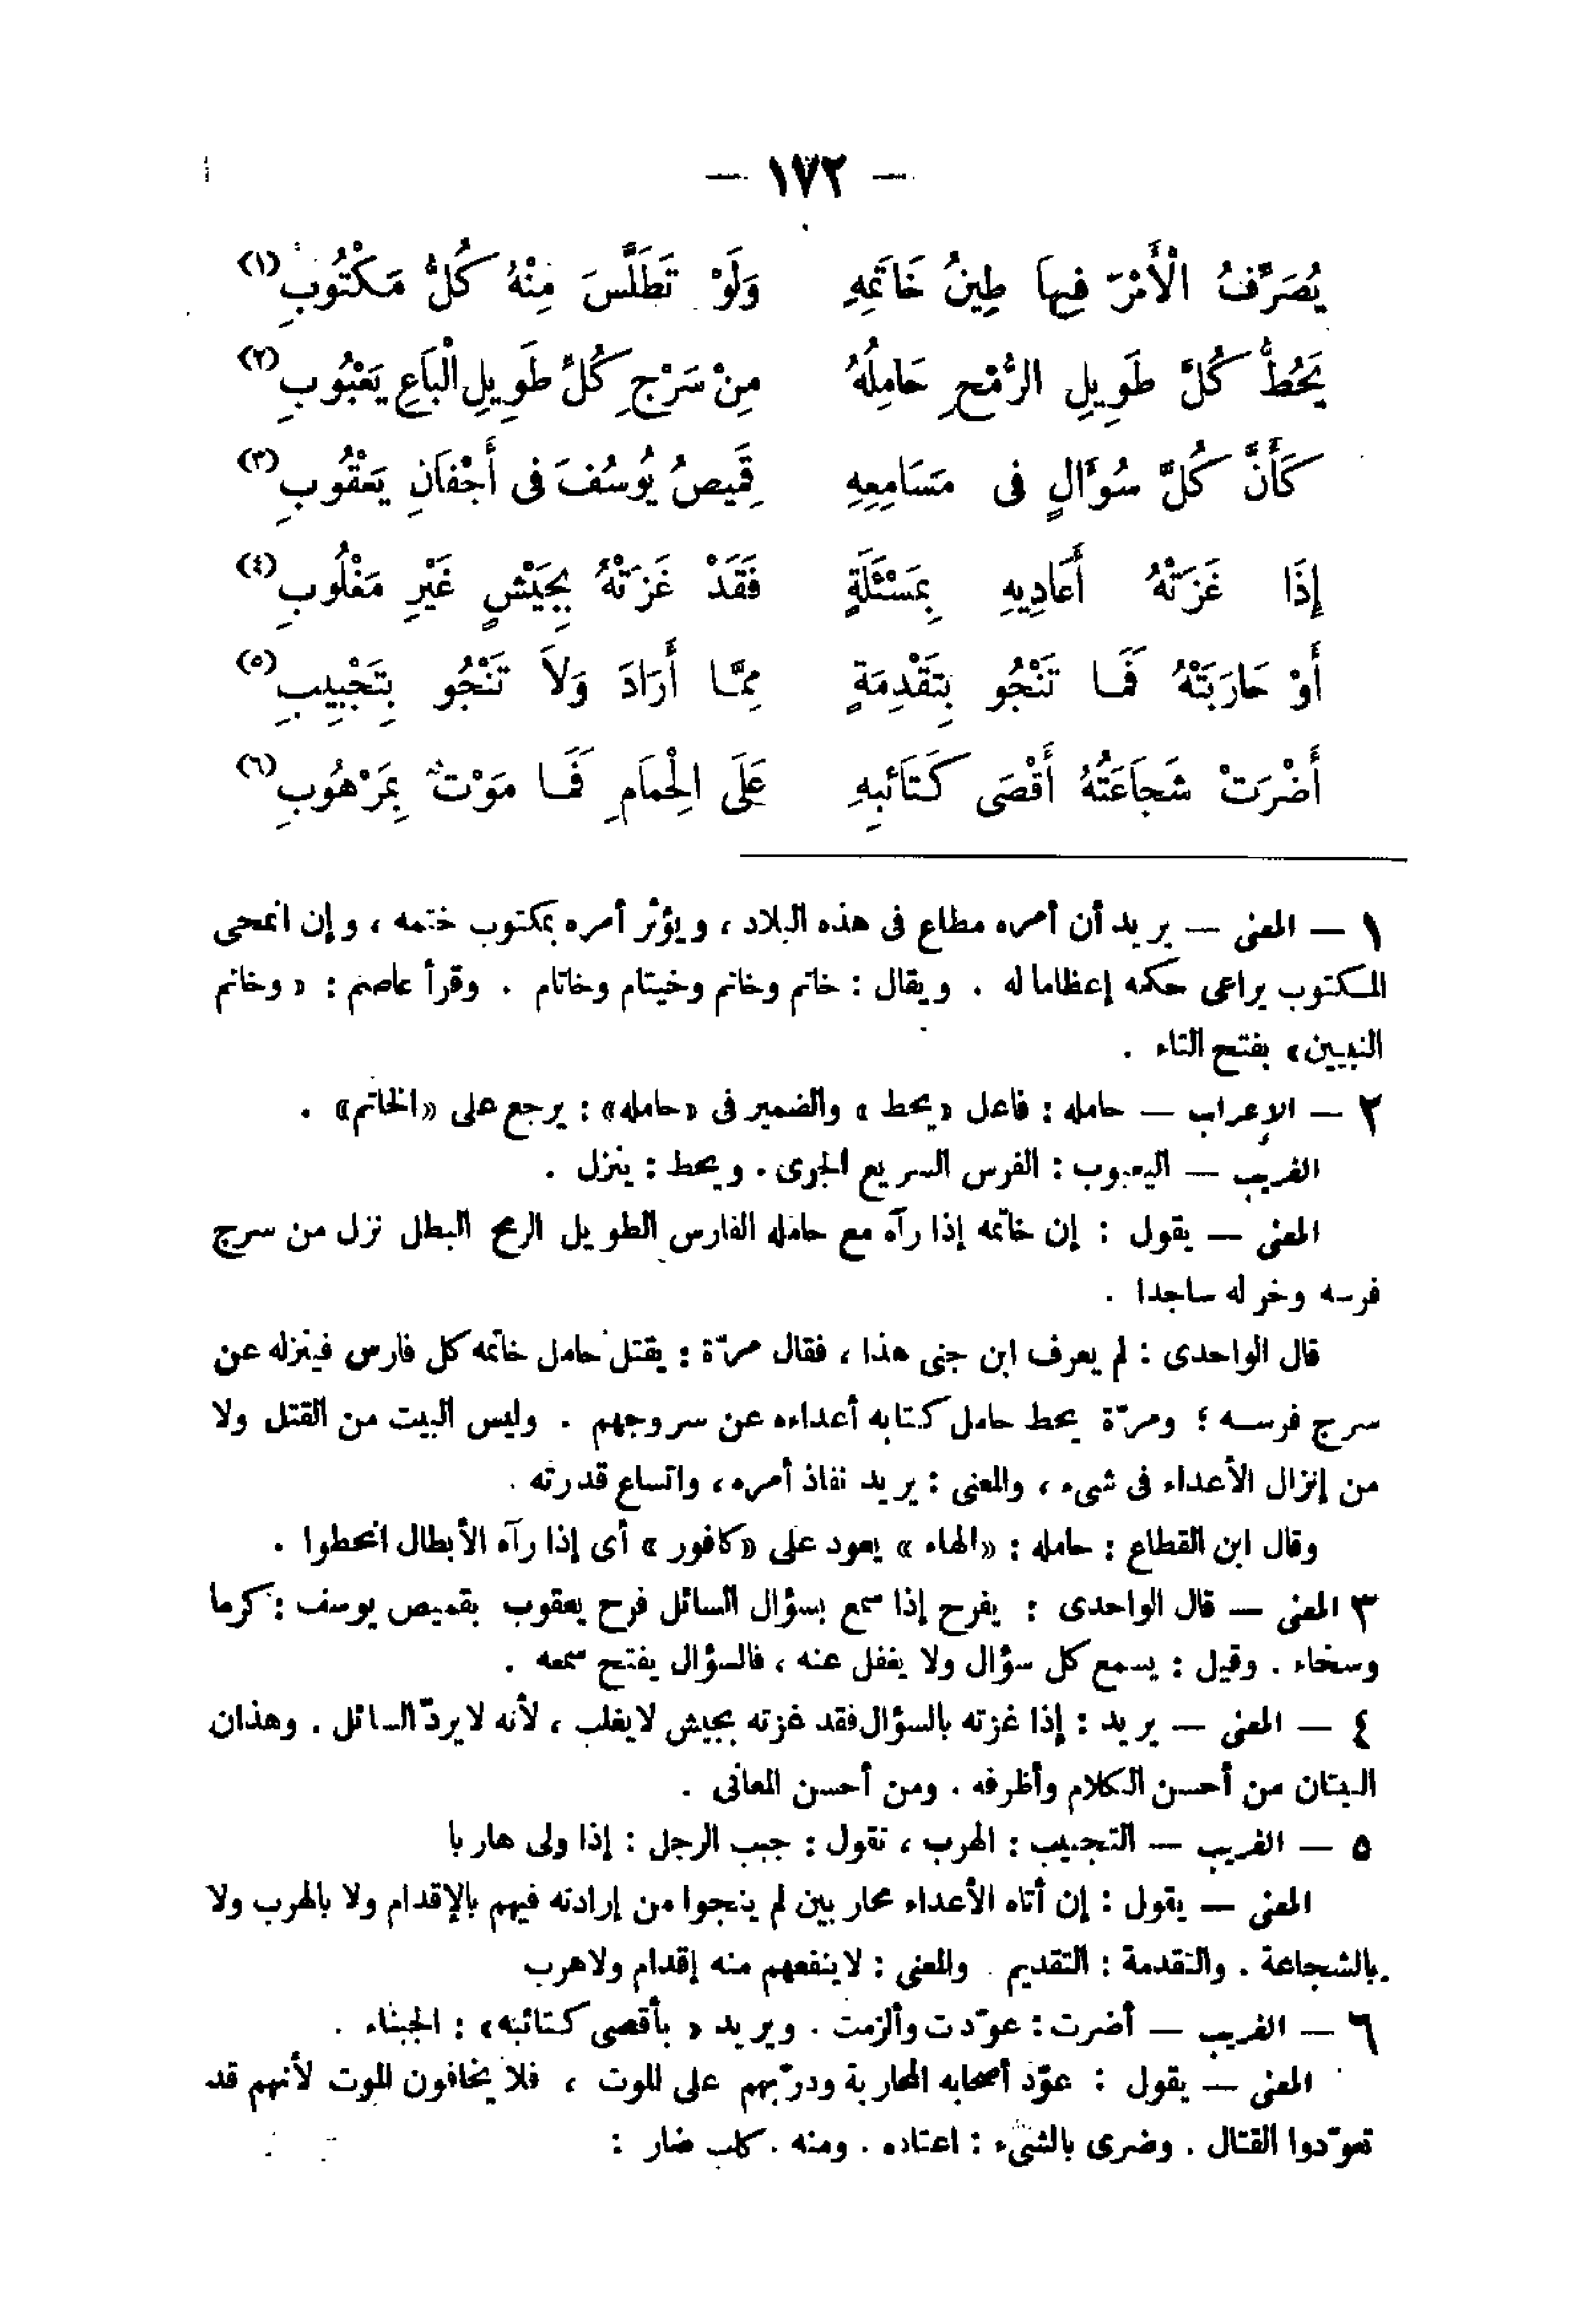 — ١٧٢ —
يُصَرِّفُ الْأَمْرَ فِيهَا طِينُ خَاتَمِهِ وَلَوْ تَطَلَّسَ مِنْهُ كُلُّ مَكْتُوبِ (١)
يَحُطُّ كُلَّ طَوِيلِ الرُّمْحِ حَامِلُهُ مِنْ سَرْجِ كُلِّ طَوِيلِ الْبَاعِ يَعْبُوبِ (٢)
كَأَنَّ كُلَّ سُؤَالٍ فى مَسَامِعِهِ قَمِيصُ يُوسُفَ فى أَجْفَانِ يَعْقُوبِ (٣)
إِذَا غَزَتْهُ أَعَادِيهِ بِمَسْئَلَةٍ فَقَدْ غَزَتْهُ بِجَيْشٍ غَيْرِ مَغْلُوبِ (٤)
أَوْ حَارَبَتْهُ فَمَا تَنْجُو بِتَقْدِمَةٍ مِمَّا أَرَادَ وَلَا تَنْجُو بِتَجْبِيبِ (٥)
أَضْرَتْ شَجَاعَتُهُ أَقْصَى كَتَائِبِهِ عَلَى الْحِمَامِ فَمَا مَوْتٌ بِمَرْهُوبِ (٦)
١ — المعنى — يريد أن أمره مطاع فى هذه البلاد ، ويؤثر أمره بمكتوب ختمه ، وإن انمحى
المكتوب يراعى حكمه إعظاما له . ويقال : خاتم وخاتم وخيتام وخاتام . وقرأ عاصم : « وخاتم
النبيين » بفتح التاء .
٢ — الإعراب — حامله : فاعل « يحط » والضمير فى « حامله » : يرجع على « الخاتم » .
الغريب — اليعبوب : الفرس السريع الجرى . ويحط : ينزل .
المعنى — يقول : إن خاتمه إذا رآه مع حامله الفارس الطويل الرمح البطل نزل من سرج
فرسه وخر له ساجدا .
قال الواحدى : لم يعرف ابن جنى هذا ، فقال مرّة : يقتل حامل خاتمه كل فارس فينزله عن
سرج فرسه ؛ ومرّة يحط حامل كتابه أعداءه عن سروجهم . وليس البيت من القتل ولا
من إنزال الأعداء فى شىء ، والمعنى : يريد نفاذ أمره ، واتساع قدرته .
وقال ابن القطاع : حامله : « الهاء » يعود على « كافور » أى إذا رآه الأبطال انحطوا .
٣ المعنى — قال الواحدى : يفرح إذا سمع بسؤال السائل فرح يعقوب بقميص يوسف : كرما
وسخاء . وقيل : يسمع كل سؤال ولا يغفل عنه ، فالسؤال يفتح سمعه .
٤ — المعنى — يريد : إذا غزته بالسؤال فقد غزته بجيش لا يغلب ، لأنه لا يردّ السائل . وهذان
البيتان من أحسن الكلام وأظرفه . ومن أحسن المعانى .
٥ — الغريب — التجبيب : الهرب ، تقول : جبب الرجل : إذا ولى هاربا
المعنى — يقول : إن أتاه الأعداء محاربين لم ينجوا من إرادته فيهم بالإقدام ولا بالهرب ولا
بالشجاعة . والتقدمة : التقديم . والمعنى : لا ينفعهم منه إقدام ولا هرب
٦ — الغريب — أضرت : عوّدت وألزمت . ويريد « بأقصى كتائبه » : الجبناء .
المعنى — يقول : عوّد أصحابه المحاربة ودرّبهم على الموت ، فلا يخافون الموت لأنهم قد
تعوّدوا القتال . وضرى بالشىء : اعتاده . ومنه . كلب ضار :